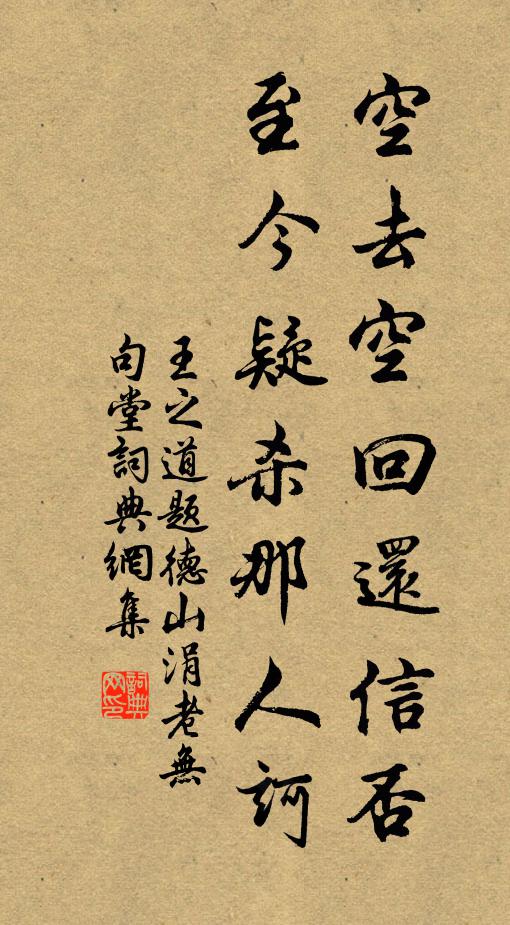 空去空回還信否
至今疑杀那人訶
王之道题德山涓老無
句堂詞典網集
詞典网印